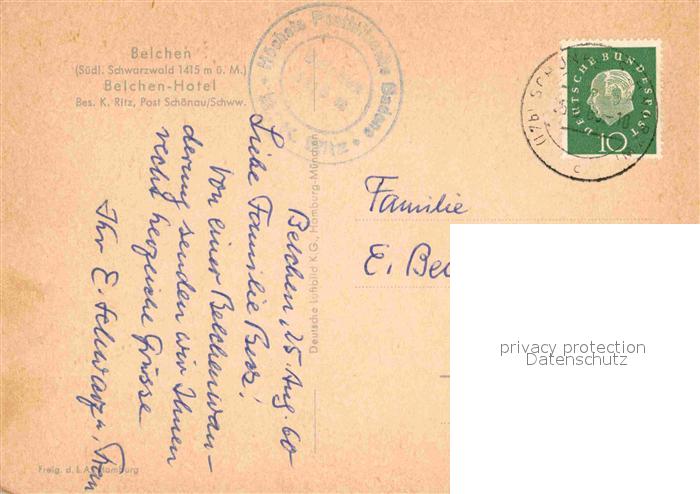 Belchen
(Südl. Schwarzwald 1415 m ü. M.)
Belchen-Hotel
Bes. K. Ritz, Post Schönau/Schww.
Höchste Posthilfstelle Badens
DEUTSCHE BUNDESPOST
10
c
Belchen, 25. Aug. 60
Liebe Familie
Von einer Belchenwan-
derung senden wir Ihnen
recht herzliche Grüsse
Ihr E. Schwarz u. Frau
Deutsche Luftbild K.G., Hamburg-München
Familie
E. Be
privacy protection
Datenschutz
Freig. d. L.A. Hamburg